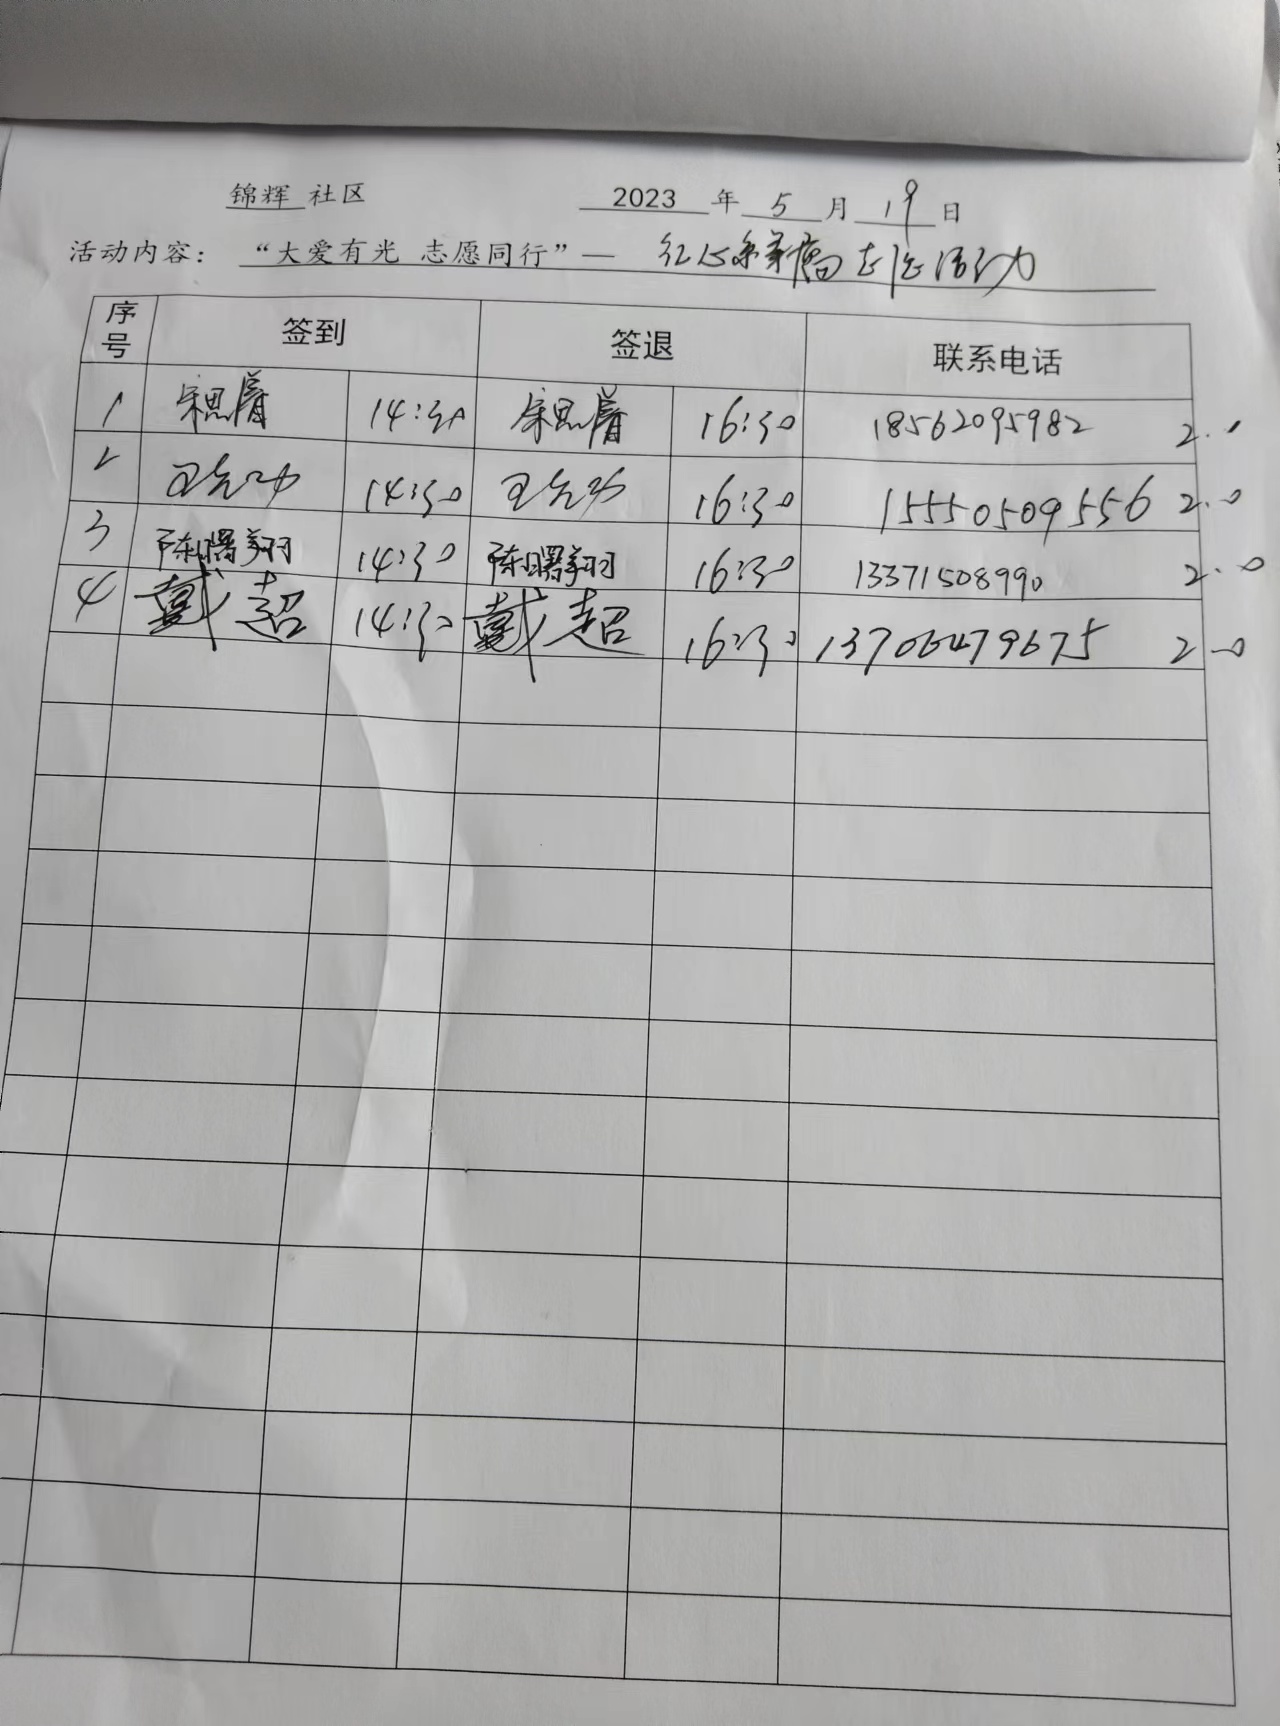 锦辉 社区 2023 年 5 月 19 日
活动内容: “大爱有光 志愿同行”— 红心 志愿活动
序号 签到 签退 联系电话
1 14:30 16:30 18562095982 2.0
2 14:30 16:30 15550509556 2.0
3 陈曙翔 14:30 陈曙翔 16:30 13371508990 2.0
4 戴超 14:30 戴超 16:30 13706479675 2.0